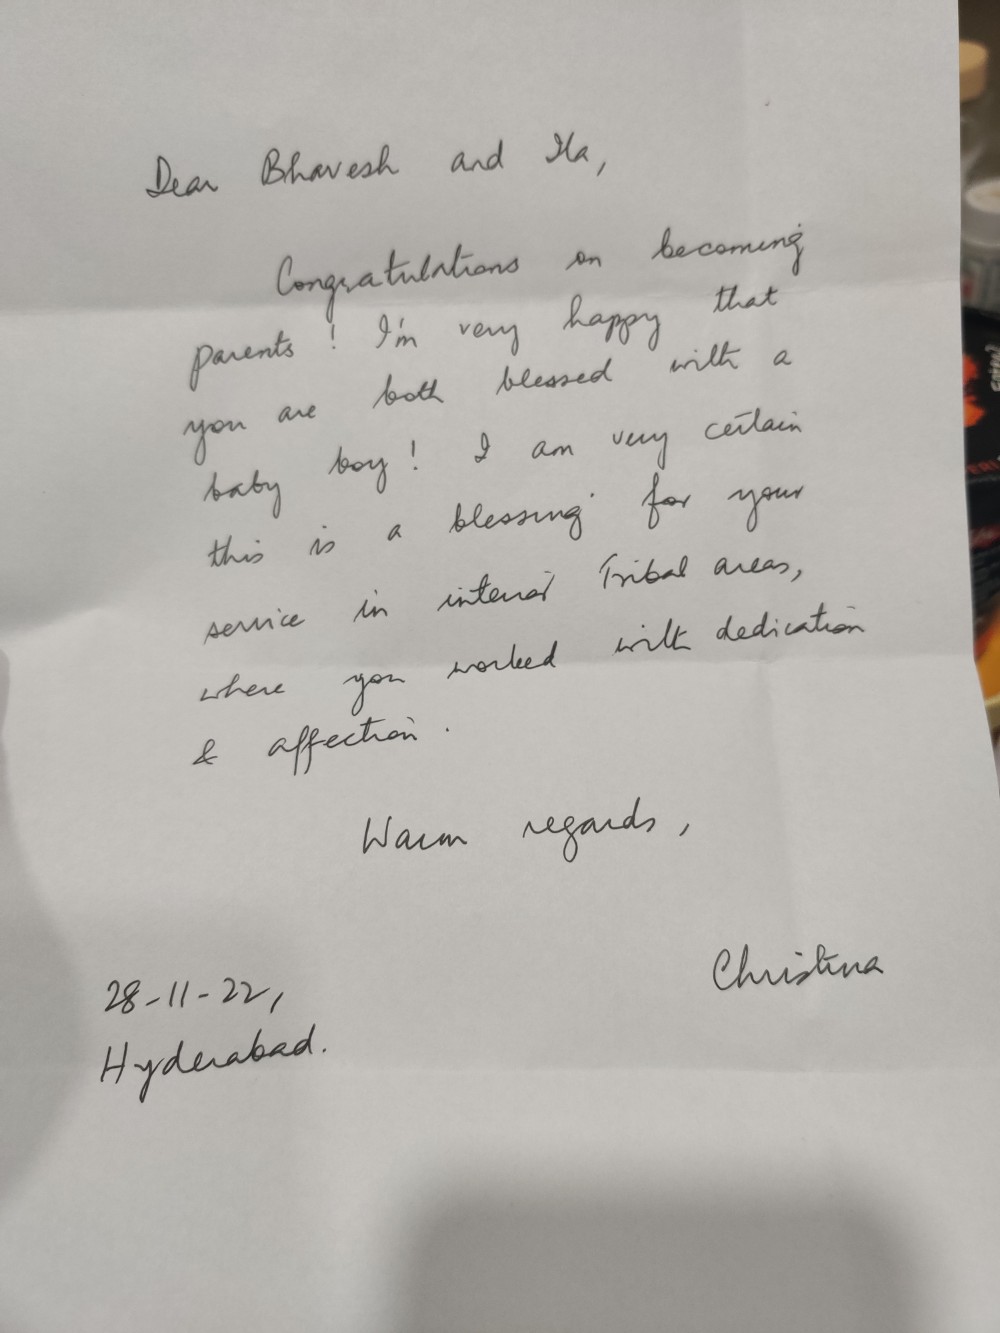 Dear Bhavesh and Ila,
Congratulations on becoming
parents! I'm very happy that
you are both blessed with a
baby boy! I am very certain
this is a blessing for your
service in interior Tribal areas,
where you worked with dedication
& affection.
Warm regards,
Christina
28-11-22,
Hyderabad.